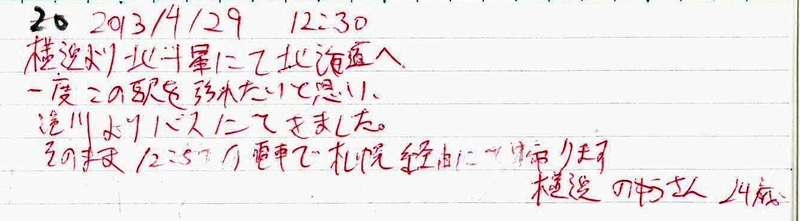 20 2013/4/29 12:30
横浜より北斗星にて北海道へ
一度この駅を訪れたいと思い、
滝川よりバスにてきました。
そのまま12:57の電車で札幌経由にて帰ります
横浜 のぅさん 24歳